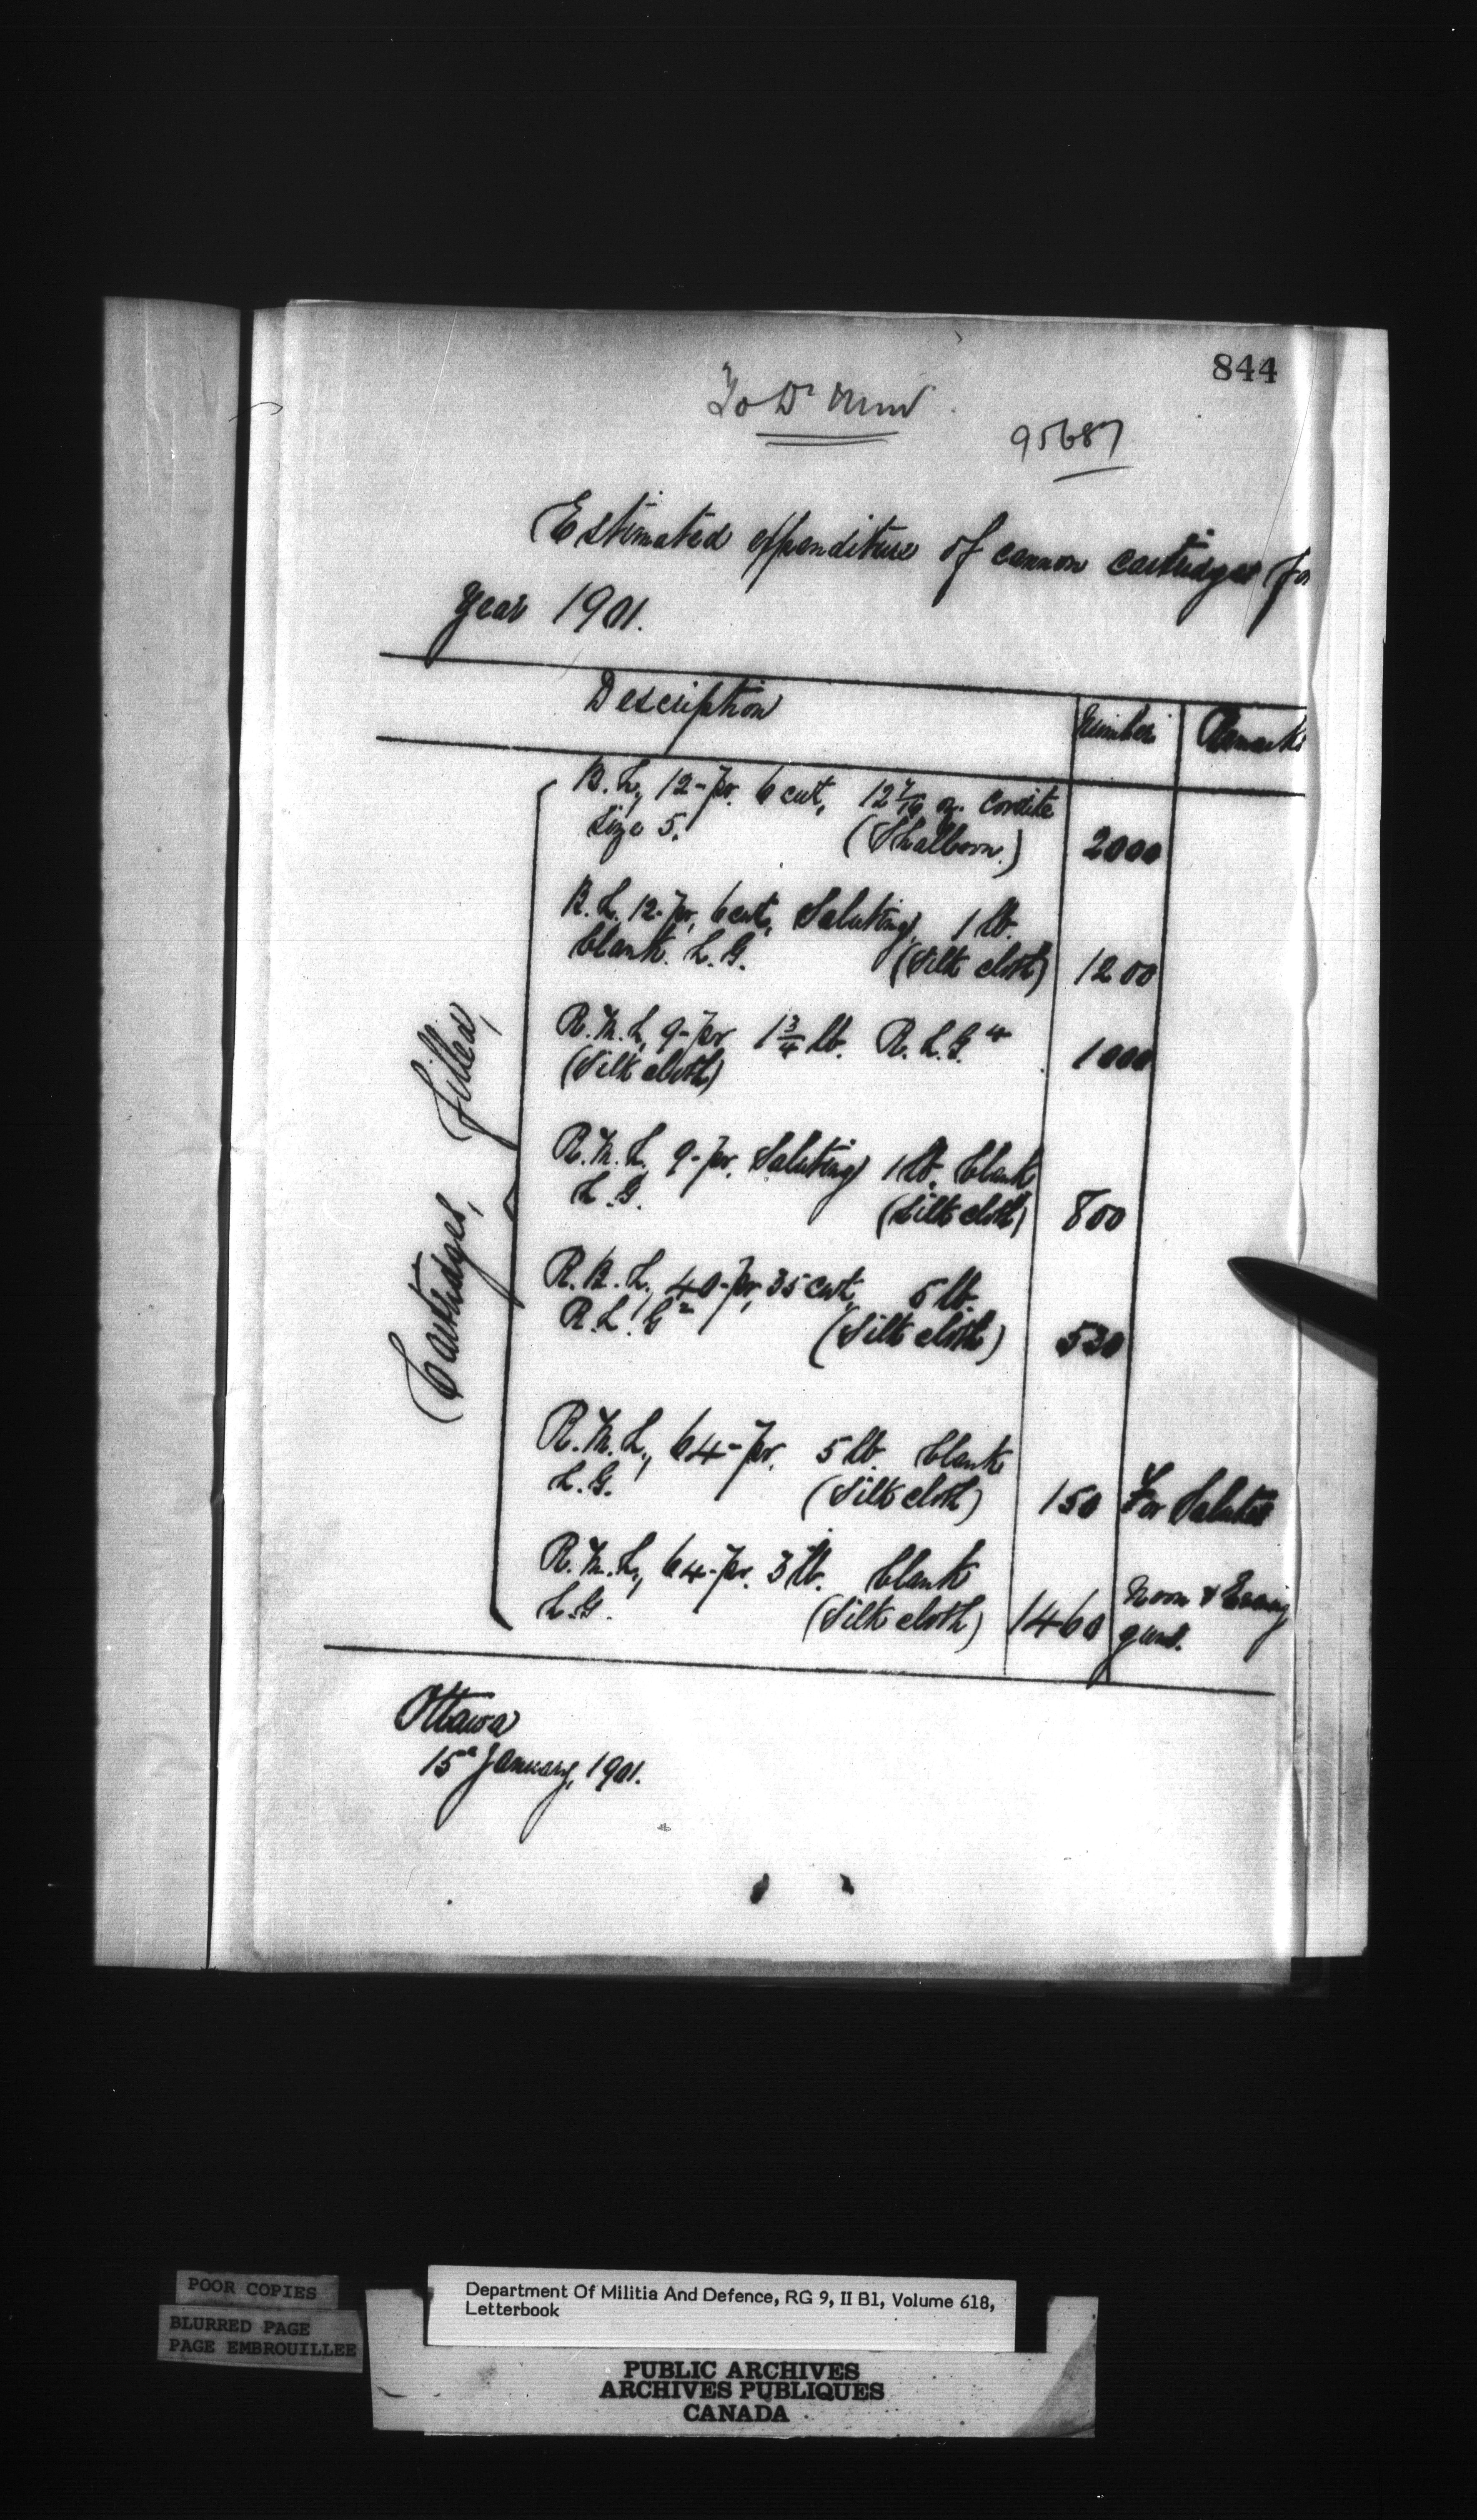 844
To Dr
95687
Estimated expenditure of cannon cartridges fo
year 1901.
Description Number Remarks
Cartridges, filled,
B.L., 12-pr. 6 cwt, 12 7/16 oz. Cordite
Size 5. (Shalloon.) 2000
B.L. 12-pr, 6 cwt, Saluting, 1 lb.
blank. L.G. (Silk cloth) 1200
R.M.L, 9-pr 1 3/4 lb. R.L.G.4
(Silk cloth) 1000
R.M.L, 9-pr. Saluting 1 lb. blank
L.G. (Silk cloth) 800
R.B.L, 40-pr, 35 cwt, 5 lb.
R.L.G2 (Silk cloth) 530
R.M.L, 64-pr. 5 lb. blank
L.G. (Silk cloth) 150 For Salutes
R.M.L., 64-pr. 3 lb. blank
L.G. (Silk cloth) 1460 Noon & Evening
guns.
Ottawa
15th January, 1901.
POOR COPIES
BLURRED PAGE
PAGE EMBROUILLEE
Department Of Militia And Defence, RG 9, II B1, Volume 618,
Letterbook
PUBLIC ARCHIVES
ARCHIVES PUBLIQUES
CANADA